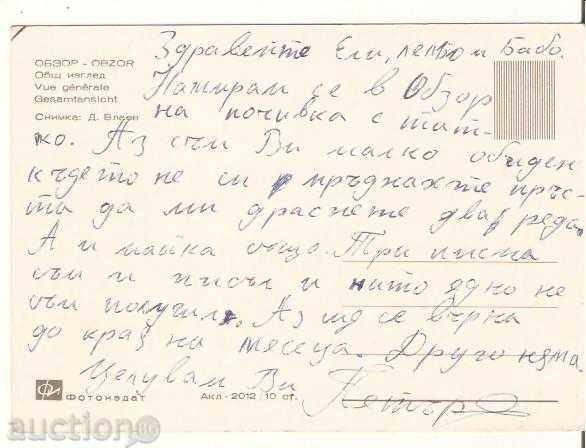 Здравейте Ели, лельо и Бабо.
ОБЗОР - OBZOR
Общ изглед
Vue générale
Gesamtansicht
Снимка: Д. Влаев
Намирам се в Обзор
на почивка с тат-
ко. Аз съм Ви малко обиден
където не си мръджахте пръс-
та да ми драснете два реда.
А и майка също. Три писма
съм и писъл и нито едно не
съм получил. Аз ще се върна
до края на месеца. Друго няма.
Целувам Ви Петър
Фотоиздат
Акл - 2012 / 10 ст.
auction